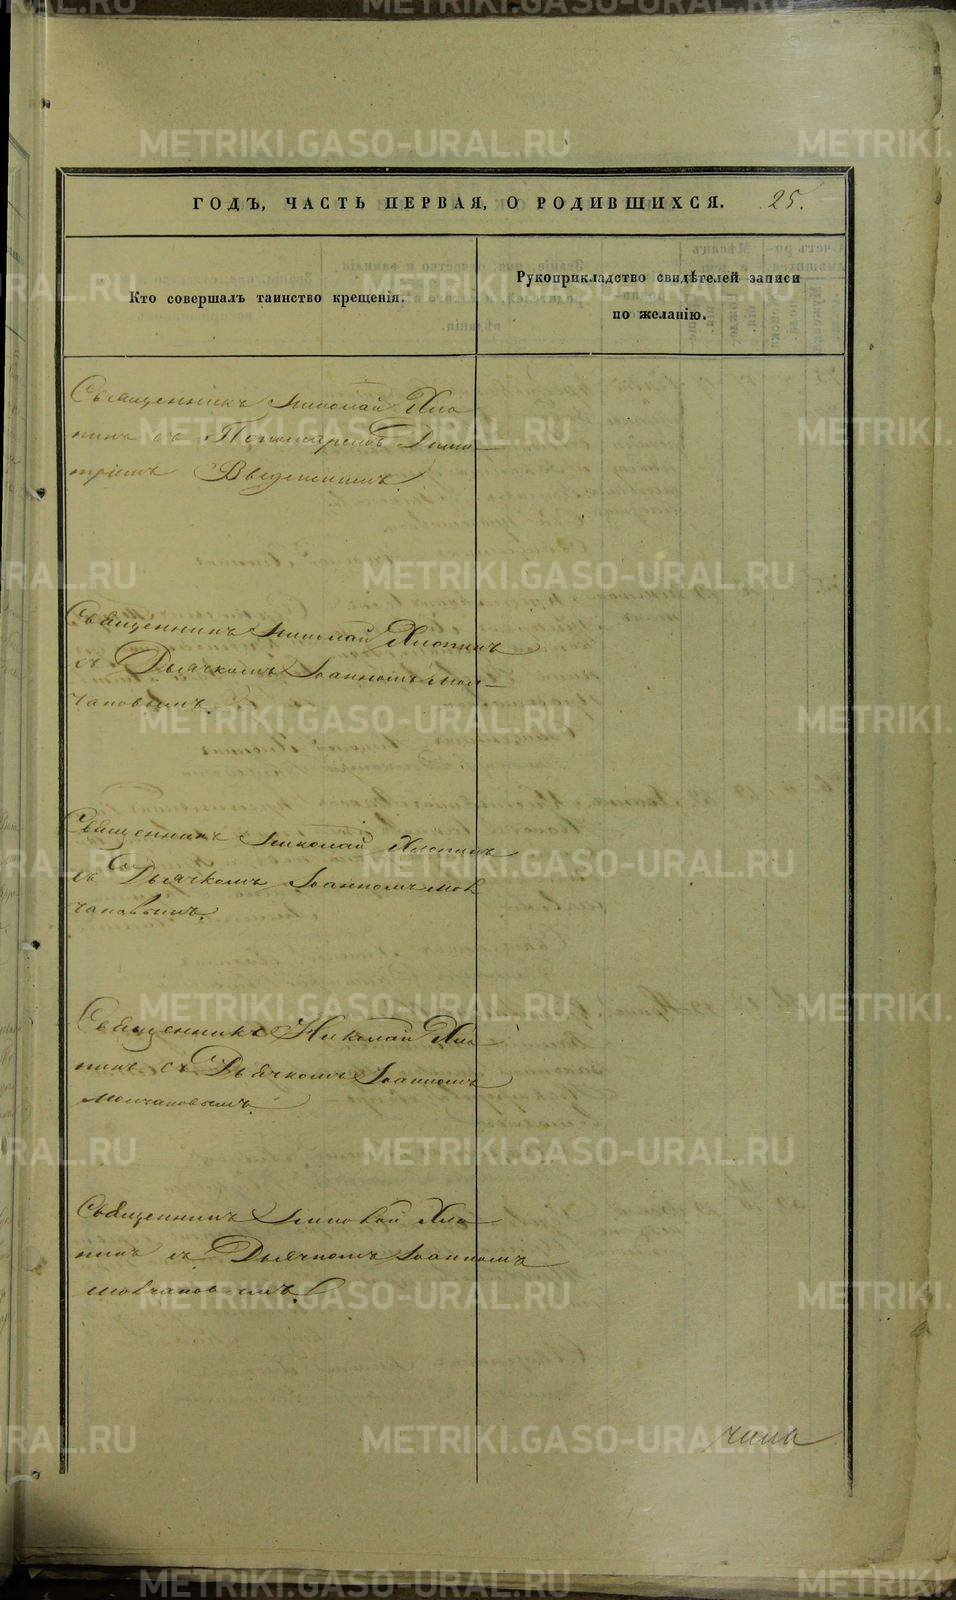 ГОДЪ, ЧАСТЬ ПЕРВАЯ, О РОДИВШИХСЯ. 25.
Кто совершалъ таинство крещенія.
Рукоприкладство свидѣтелей записи
по желанію.
Священникъ Николай Хло
пинъ съ Пономаремъ Дими
тріемъ Введенскимъ.
Священникъ Николай Хлопинъ
съ Дьячкомъ Іоанномъ Мол
чановымъ.
Священникъ Николай Хлопинъ
съ Дьячкомъ Іоанномъ Мол
чановымъ.
Священникъ Николай Хло
пинъ съ Дьячкомъ Іоанномъ
Молчановымъ.
Священникъ Николай Хло
пинъ съ Дьячкомъ Іоанномъ
Молчановымъ.
METRIKI.GASO-URAL.RU